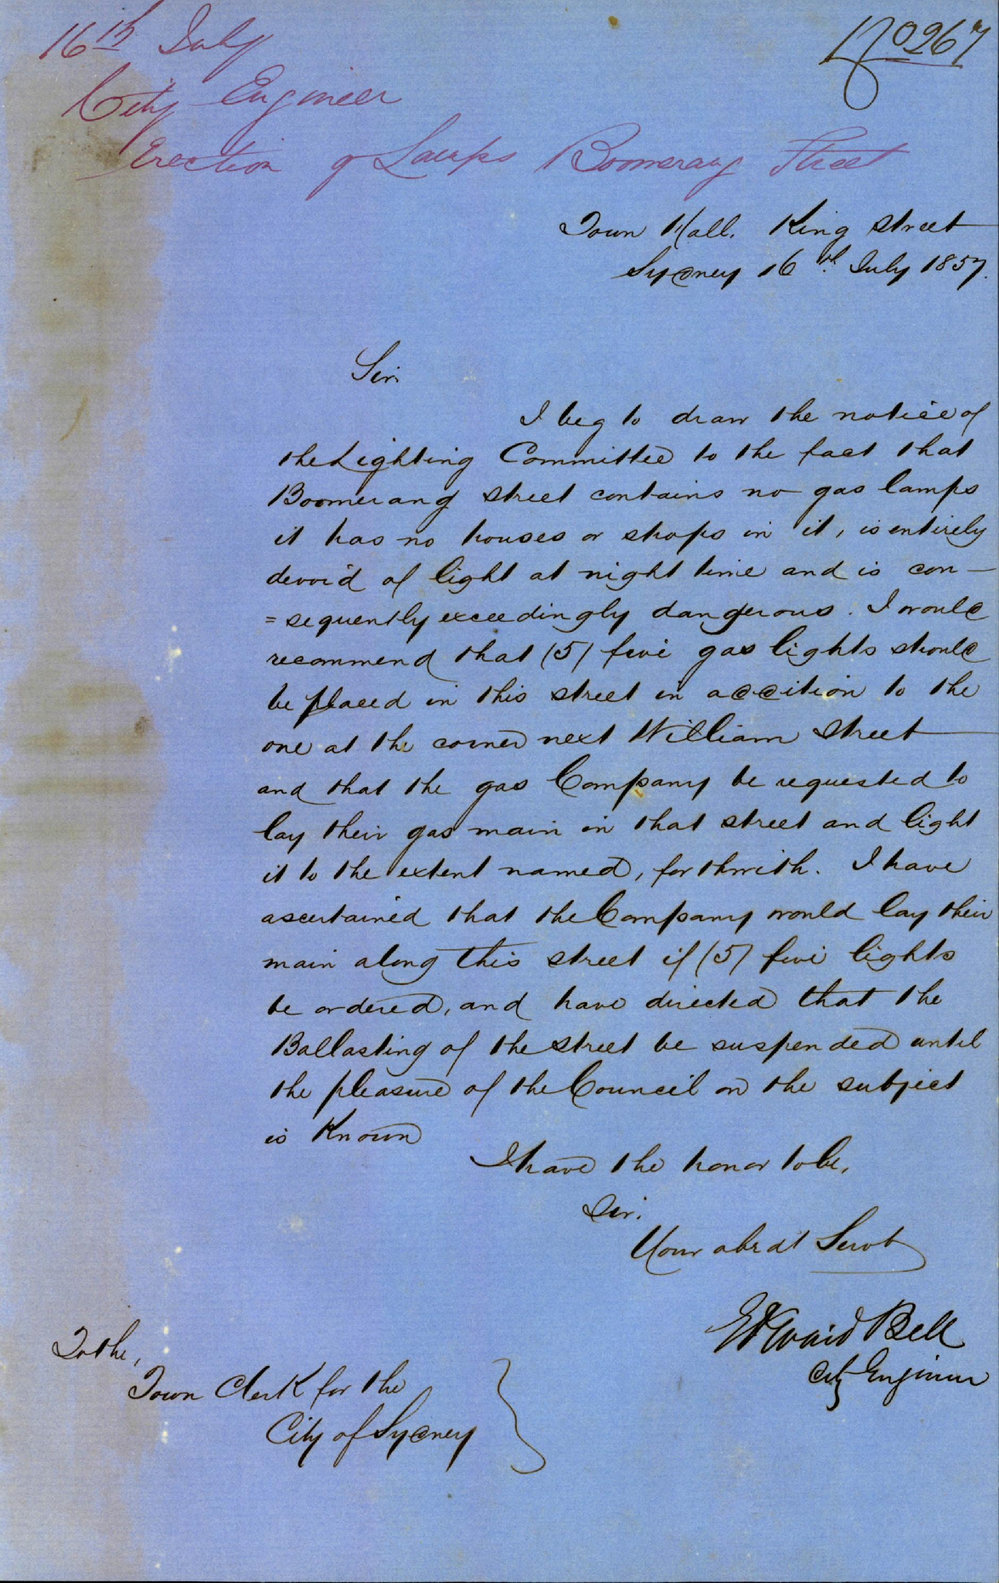 16th July
No 267
City Engineer
Erection of Lamps Boomerang Street
Town Hall. King Street
Sydney 16th July 1857.
Sir.
I beg to draw the notice of
the Lighting Committee to the fact that
Boomerang Street contains no gas lamps
it has no houses or shops in it, is entirely
devoid of light at night time and is con-
=sequently exceedingly dangerous. I would
recommend that (5) five gas lights should
be placed in this street in addition to the
one at the corner next William Street
and that the gas Company be requested to
lay their gas main in that street and light
it to the extent named, forthwith. I have
ascertained that the Company would lay their
main along this street if (5) five lights
be ordered, and have directed that the
Ballasting of the street be suspended until
the pleasure of the Council on the subject
is Known
I have the honor to be,
Sir.
Your obedt Servt
Edward Bell
City Engineer
To the,
Town Clerk for the
City of Sydney